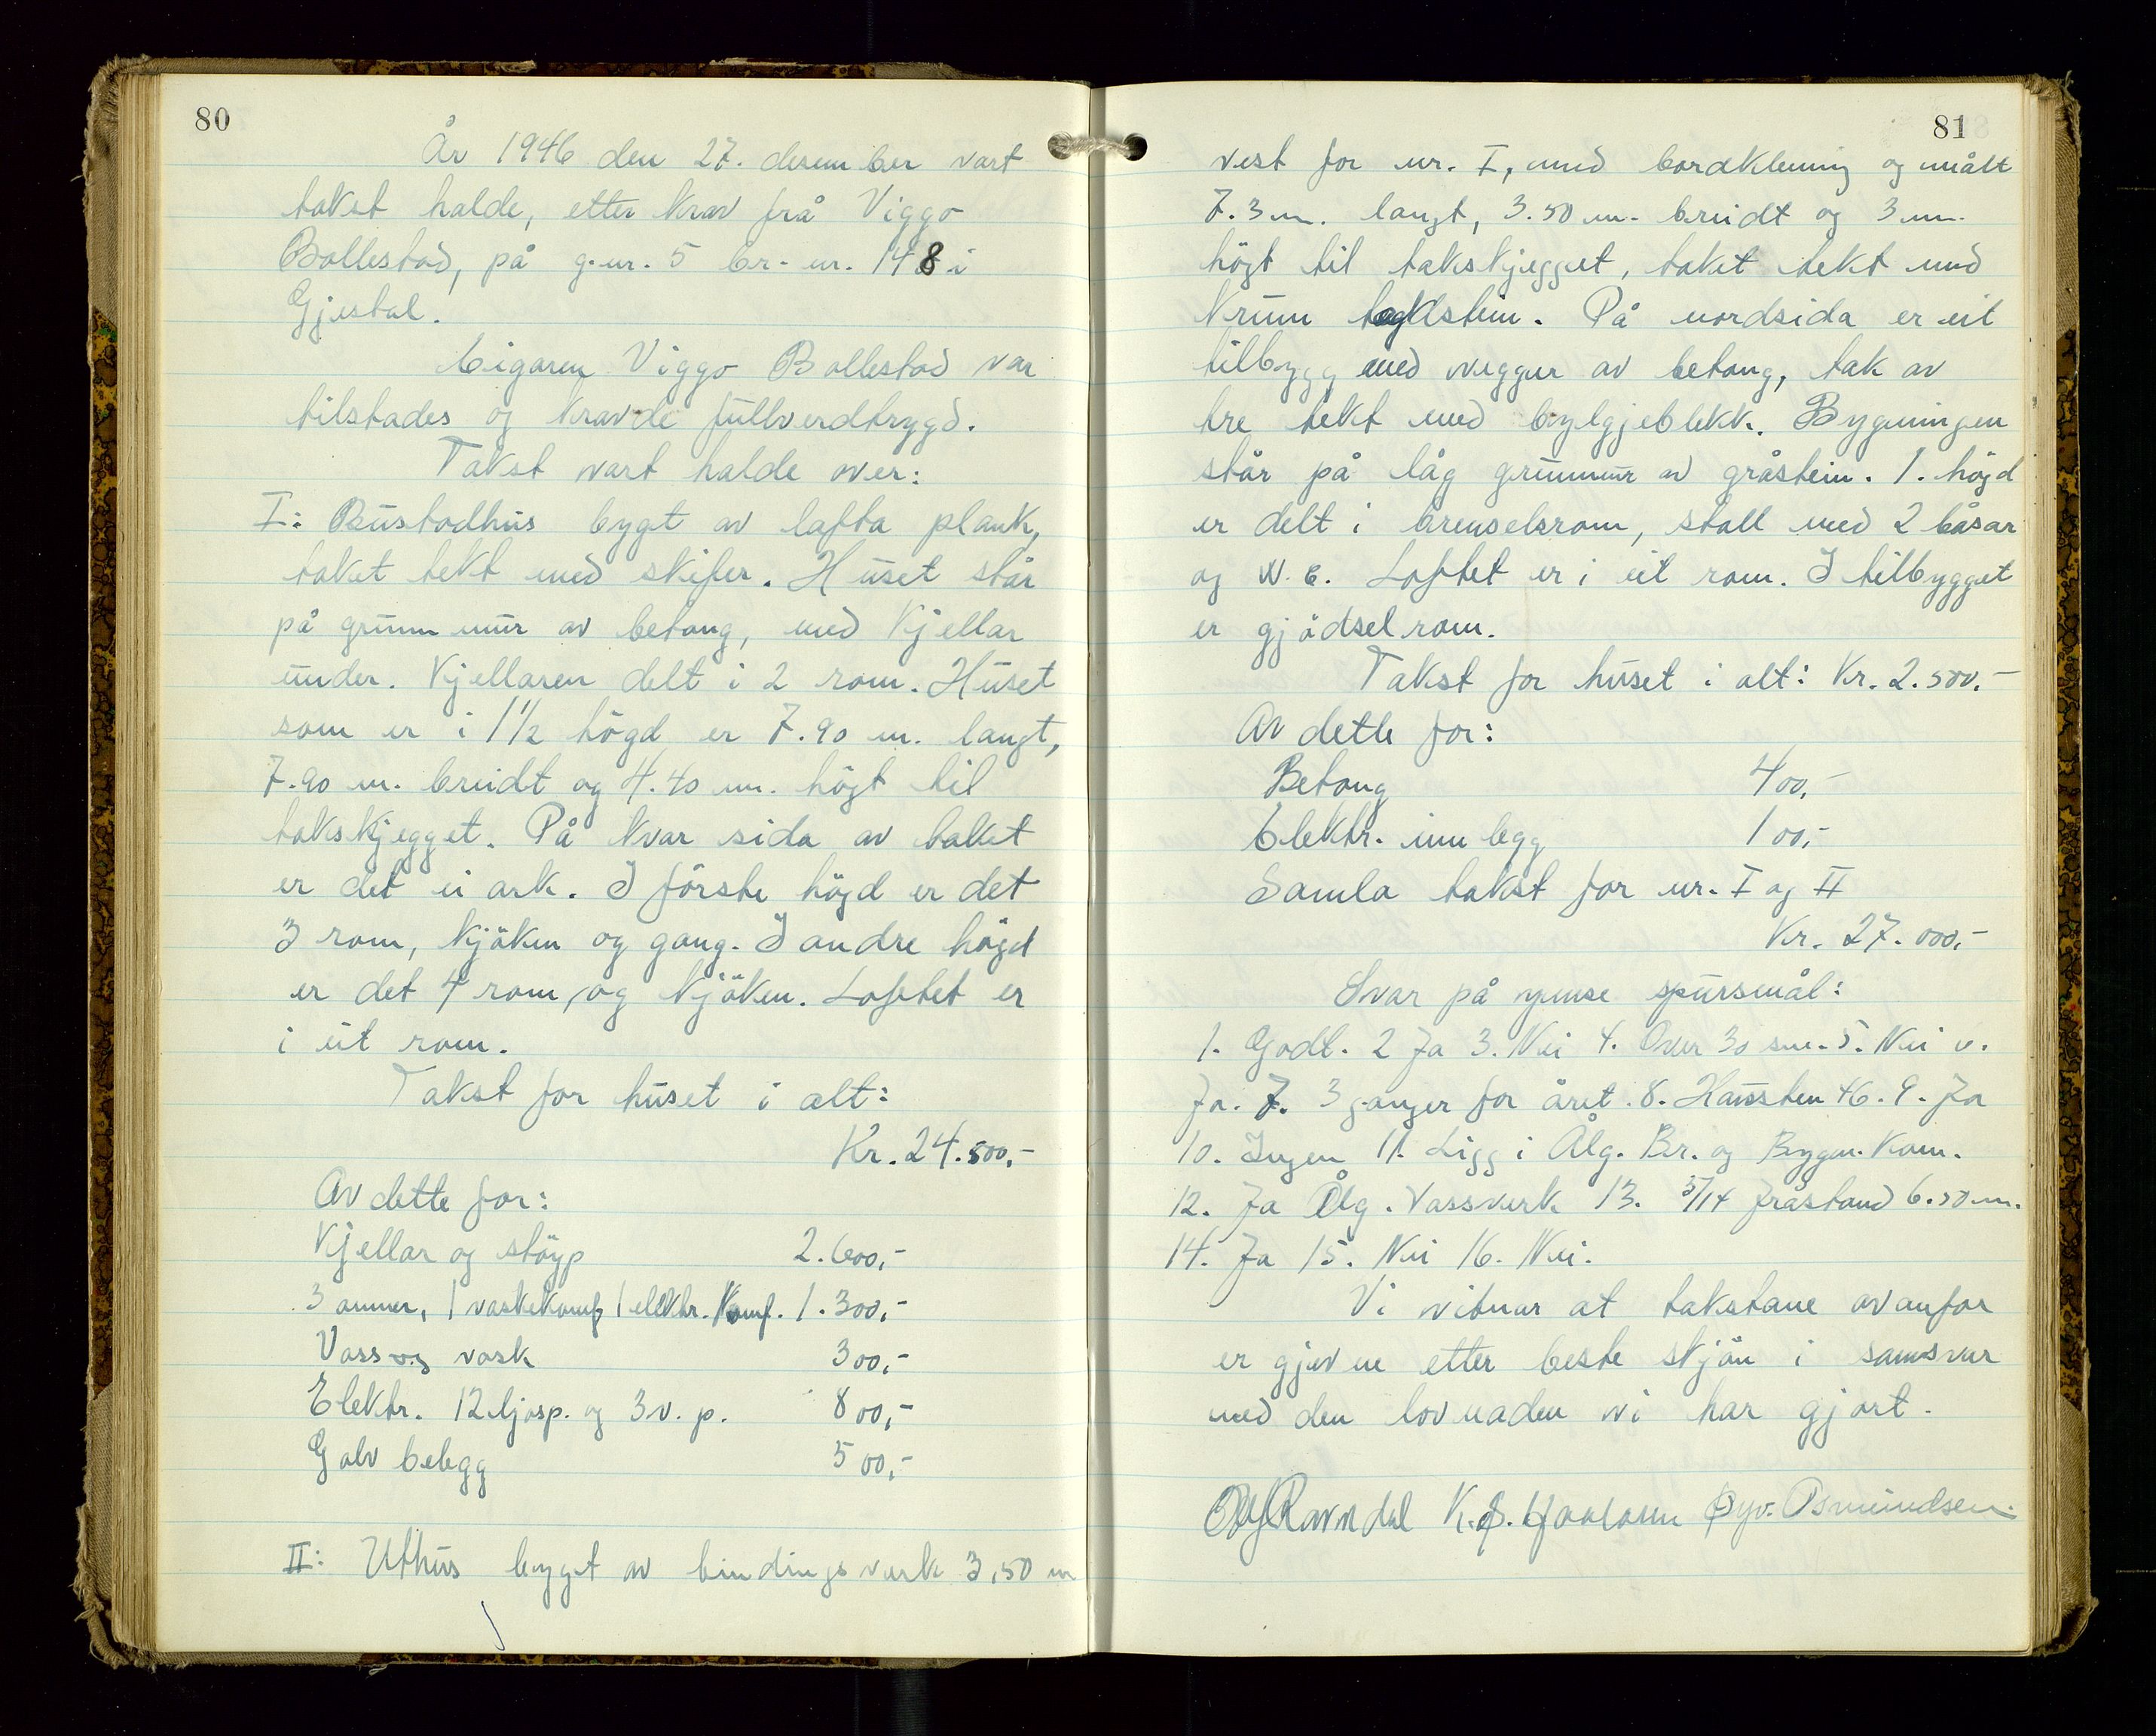 80
År 1946 den 27. desember vart
takst halde, etter krav frå Viggo
Bollestad, på g.nr. 5 br.nr. 148 i
Gjestal.
Eigaren Viggo Bollestad var
tilstades og kravde fullverdtrygd.
Takst vart halde over:
I: Bustadhus bygt av lafta plank,
taket tekt med skifer. Huset står
på grunnmur av betong, med kjellar
under. Kjellaren delt i 2 rom. Huset
som er i 1 1/2 högd er 7.90 m. langt,
7.90 m. breidt og 4.40 m. högt til
takskjegget. På kvar sida av taket
er det ei ark. I förste högd er det
3 rom, kjöken og gang. I andre högd
er det 4 rom, og kjöken. Loftet er
i eit rom.
Takst for huset i alt:
Kr. 24.500,-
Av dette for:
Kjellar og stöyp 2.600,-
3 omner, 1 vaskekomf 1 elektr. Komf. 1.300,-
Vass og vask 300,-
Elektr. 12 ljosp. og 3 v. p. 800,-
Golvbelegg 500,-
II: Uthus bygt av bindingsverk 3,50 m
81
vest for nr. I, med bordkledning og målt
7.3 m. langt, 3.50 m. breidt og 3 m.
högt til takskjegget, taket tekt med
krum taglstein. På nordsida er eit
tilbygg med vegger av betong, tak av
tre tekt med bylgjeblekk. Bygningen
står på låg grunnmur av gråstein. 1. högd
er delt i brenselsrom, stall med 2 båsar
og W.C. Loftet er i eit rom. I tilbygget
er gjödselrom.
Takst for huset i alt: Kr. 2.500.-
Av dette for:
Betong 400,-
Elektr. innlegg 100,-
Samla takst for nr. I og II
Kr. 27.000,-
Svar på ymse spursmål:
1. Godt. 2 Ja 3. Nei 4. Over 30 sm. 5. Nei 6.
Ja. 7. 3 ganger for året. 8. Hausten 46. 9. Ja
10. Ingen 11. Ligg i Ålg. Br. og Bygn. Kom.
12. Ja Ålg. Vassverk 13. 5/14 fråstand 6.50 m.
14. Ja 15. Nei 16. Nei.
Vi vitnar at takstane ovanfor
er gjevne etter beste skjön i samsvar
med den lovnaden vi har gjort.
Ravndal K. Øyv. Asmundsen.